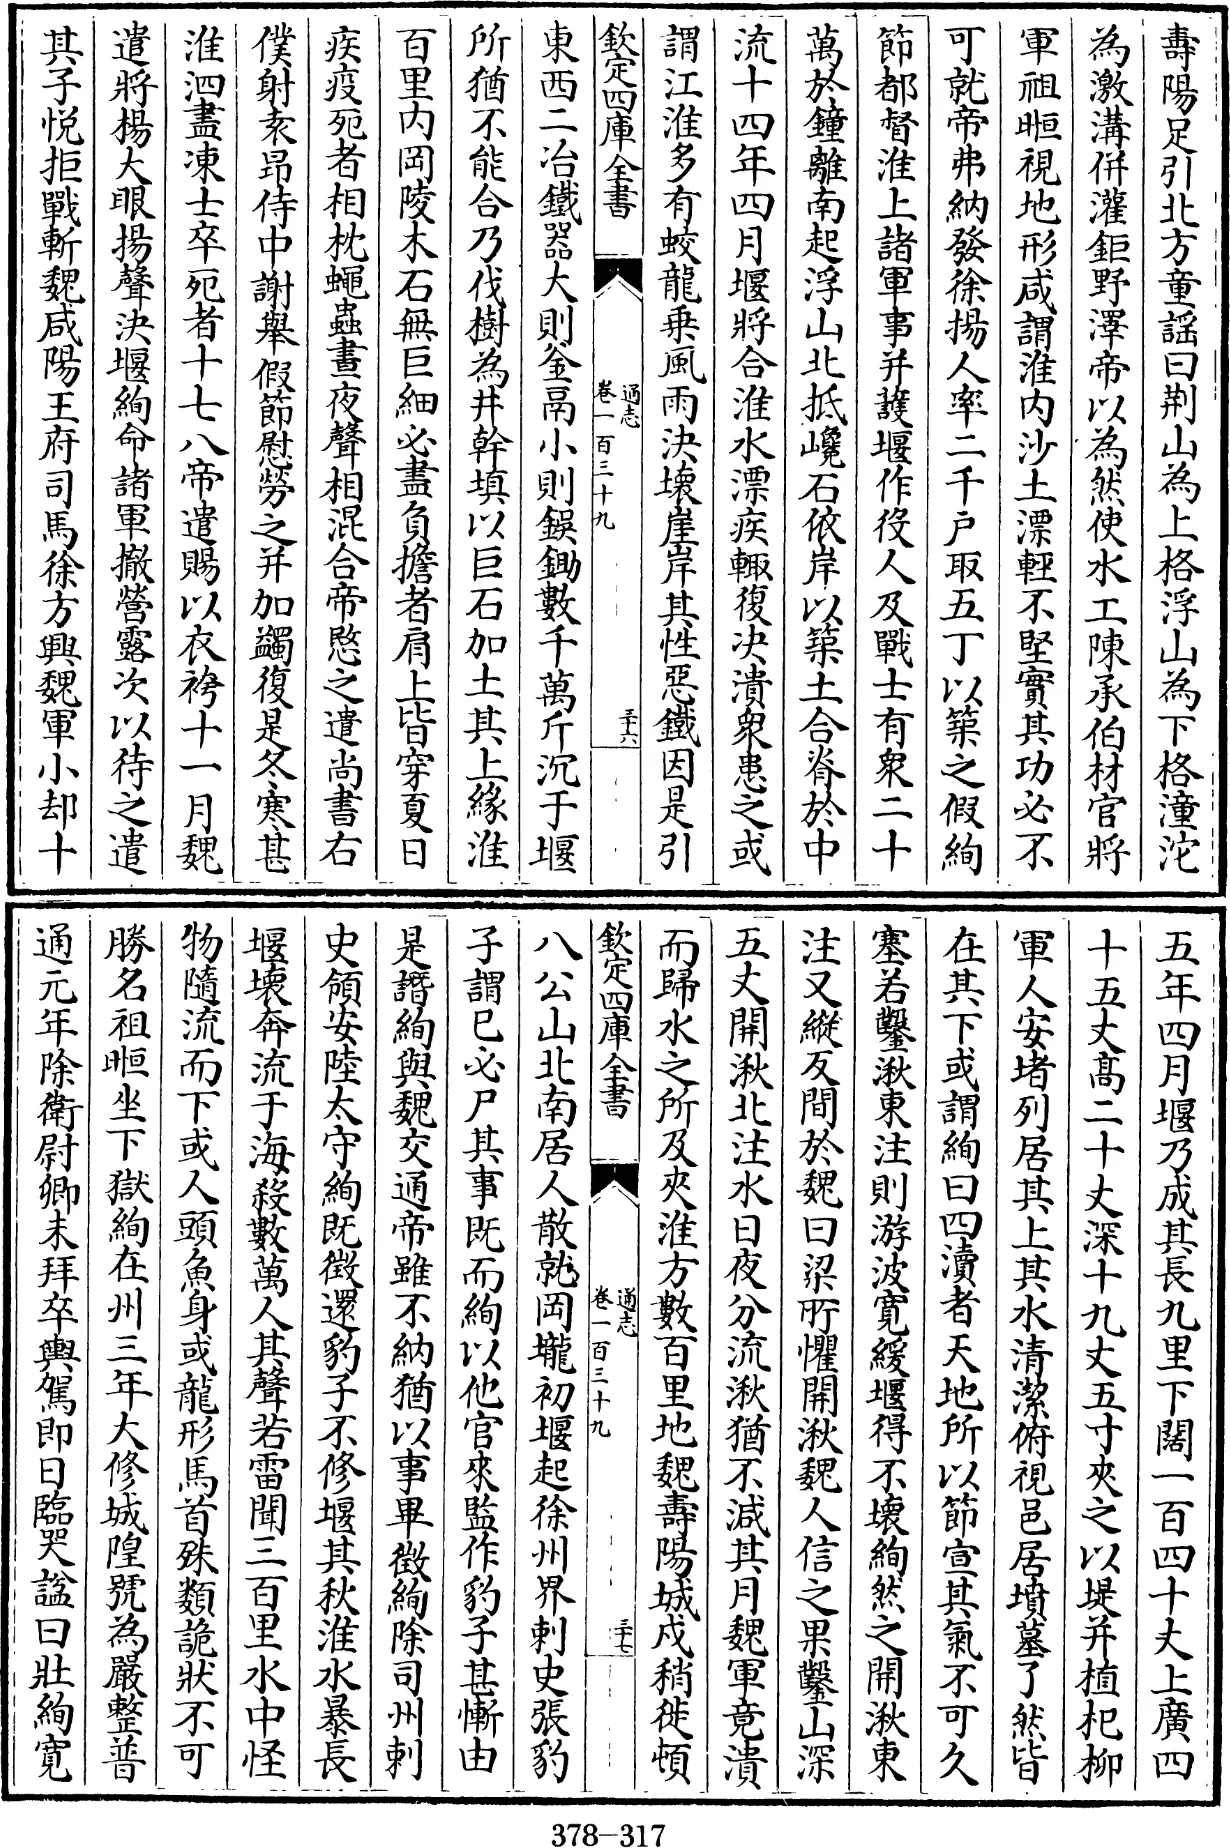 壽陽足引北方童謡曰荆山為上格浮山為下格潼沱
為激溝併灌鉅野澤帝以為然使水工陳承伯材官將
軍祖暅視地形咸謂淮内沙土漂輕不堅實其功必不
可就帝弗納發徐揚人率二千户取五丁以築之假絢
節都督淮上諸軍事并護堰作役人及戰士有衆二十
萬於鐘離南起浮山北抵巉石依岸以築土合脊於中
流十四年四月堰將合淮水漂疾輙復决潰衆患之或
謂江淮多有蛟龍乗風雨決壊崖岸其性惡鐵因是引
欽定四庫全書
通志
卷一百三十九
三十六
東西二冶鐵器大則釡鬲小則鋘鋤數千萬斤沉于堰
所猶不能合乃伐樹為井幹填以巨石加土其上緣淮
百里内岡陵木石無巨細必盡負擔者肩上皆穿夏日
疾疫死者相枕蠅蟲晝夜聲相混合帝愍之遣尚書右
僕射袁昻侍中謝舉假節慰勞之并加蠲復是冬寒甚
淮泗盡凍士卒死者十七八帝遣賜以衣袴十一月魏
遣將楊大眼揚聲決堰絢命諸軍撤營露次以待之遣
其子悦拒戰斬魏咸陽王府司馬徐方興魏軍小却十
五年四月堰乃成其長九里下闊一百四十丈上廣四
十五丈髙二十丈深十九丈五寸夾之以堤并植杞柳
軍人安堵列居其上其水清潔俯視邑居墳墓了然皆
在其下或謂絢曰四瀆者天地所以節宣其氣不可久
塞若鑿湫東注則游波寛緩堰得不壊絢然之開湫東
注又縱反間於魏曰梁所懼開湫魏人信之果鑿山深
五丈開湫北注水日夜分流湫猶不減其月魏軍竟潰
而歸水之所及夾淮方數百里地魏壽陽城戍稍徙頓
欽定四庫全書
通志
卷一百三十九
三十七
八公山北南居人散就岡壠初堰起徐州界刺史張豹
子謂已必尸其事既而絢以他官來監作豹子甚慚由
是譖絢與魏交通帝雖不納猶以事畢徴絢除司州刺
史領安陸太守絢既徴還豹子不修堰其秋淮水暴長
堰壊奔流于海殺數萬人其聲若雷聞三百里水中怪
物隨流而下或人頭魚身或龍形馬首殊類詭狀不可
勝名祖暅坐下獄絢在州三年大修城隍號為嚴整普
通元年除衛尉卿未拜卒輿駕即日臨哭諡曰壯絢寛
378-317